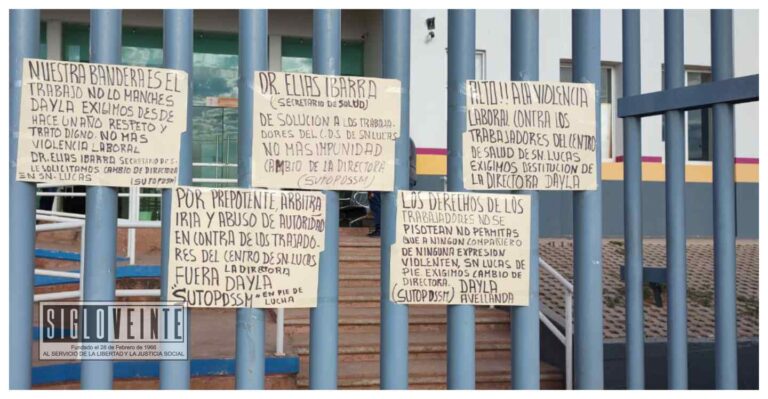 NUESTRA BANDERA ES EL
TRABAJO NO LO MANCHES
DAYLA EXIGIMOS DESDE
HACE UN AÑO RESPETO Y
TRATO DIGNO. NO MAS
VIOLENCIA LABORAL
DR. ELIAS IBARRA SECRETARIO DE S.
LE SOLICITAMOS CAMBIO DE DIRECTORA
EN SN-LUCAS (SUTOPDSSM)
DR. ELIAS IBARRA
(SECRETARIO DE SALUD)
DE SOLUCION A LOS TRABAJA
DORES DEL C.D.S DE SN LUCAS
NO MAS IMPUNIDAD
CAMBIO DE LA DIRECTORA
(SUTOPDSSM)
ALTO!! A LA VIOLENCIA
LABORAL CONTRA LOS
TRABAJADORES DEL CENTRO
DE SALUD DE SN. LUCAS
EXIGIMOS DESTITUCION DE
LA DIRECTORA DAYLA
POR PREPOTENTE, ARBITRA
IRIA Y ABUSO DE AUTORIDAD
EN CONTRA DE LOS TRAJADO-
RES DEL CENTRO DE SN LUCAS
LA DIRECTORA
FUERA DAYLA
"SUTOPDSSM" EN PIE DE
LUCHA
LOS DERECHOS DE LOS
TRABAJADORES NO SE
PISOTEAN NO PERMITAS
QUE A NINGUN COMPAÑERO
DE NINGUNA EXPRESION
VIOLENTEN, SN LUCAS DE
PIE. EXIGIMOS CAMBIO DE
DIRECTORA. DAYLA
(SUTOPDSSM) AVELLANDA
SIGLOVEINTE
Fundado el 28 de Febrero de 1966
AL SERVICIO DE LA LIBERTAD Y LA JUSTICIA SOCIAL